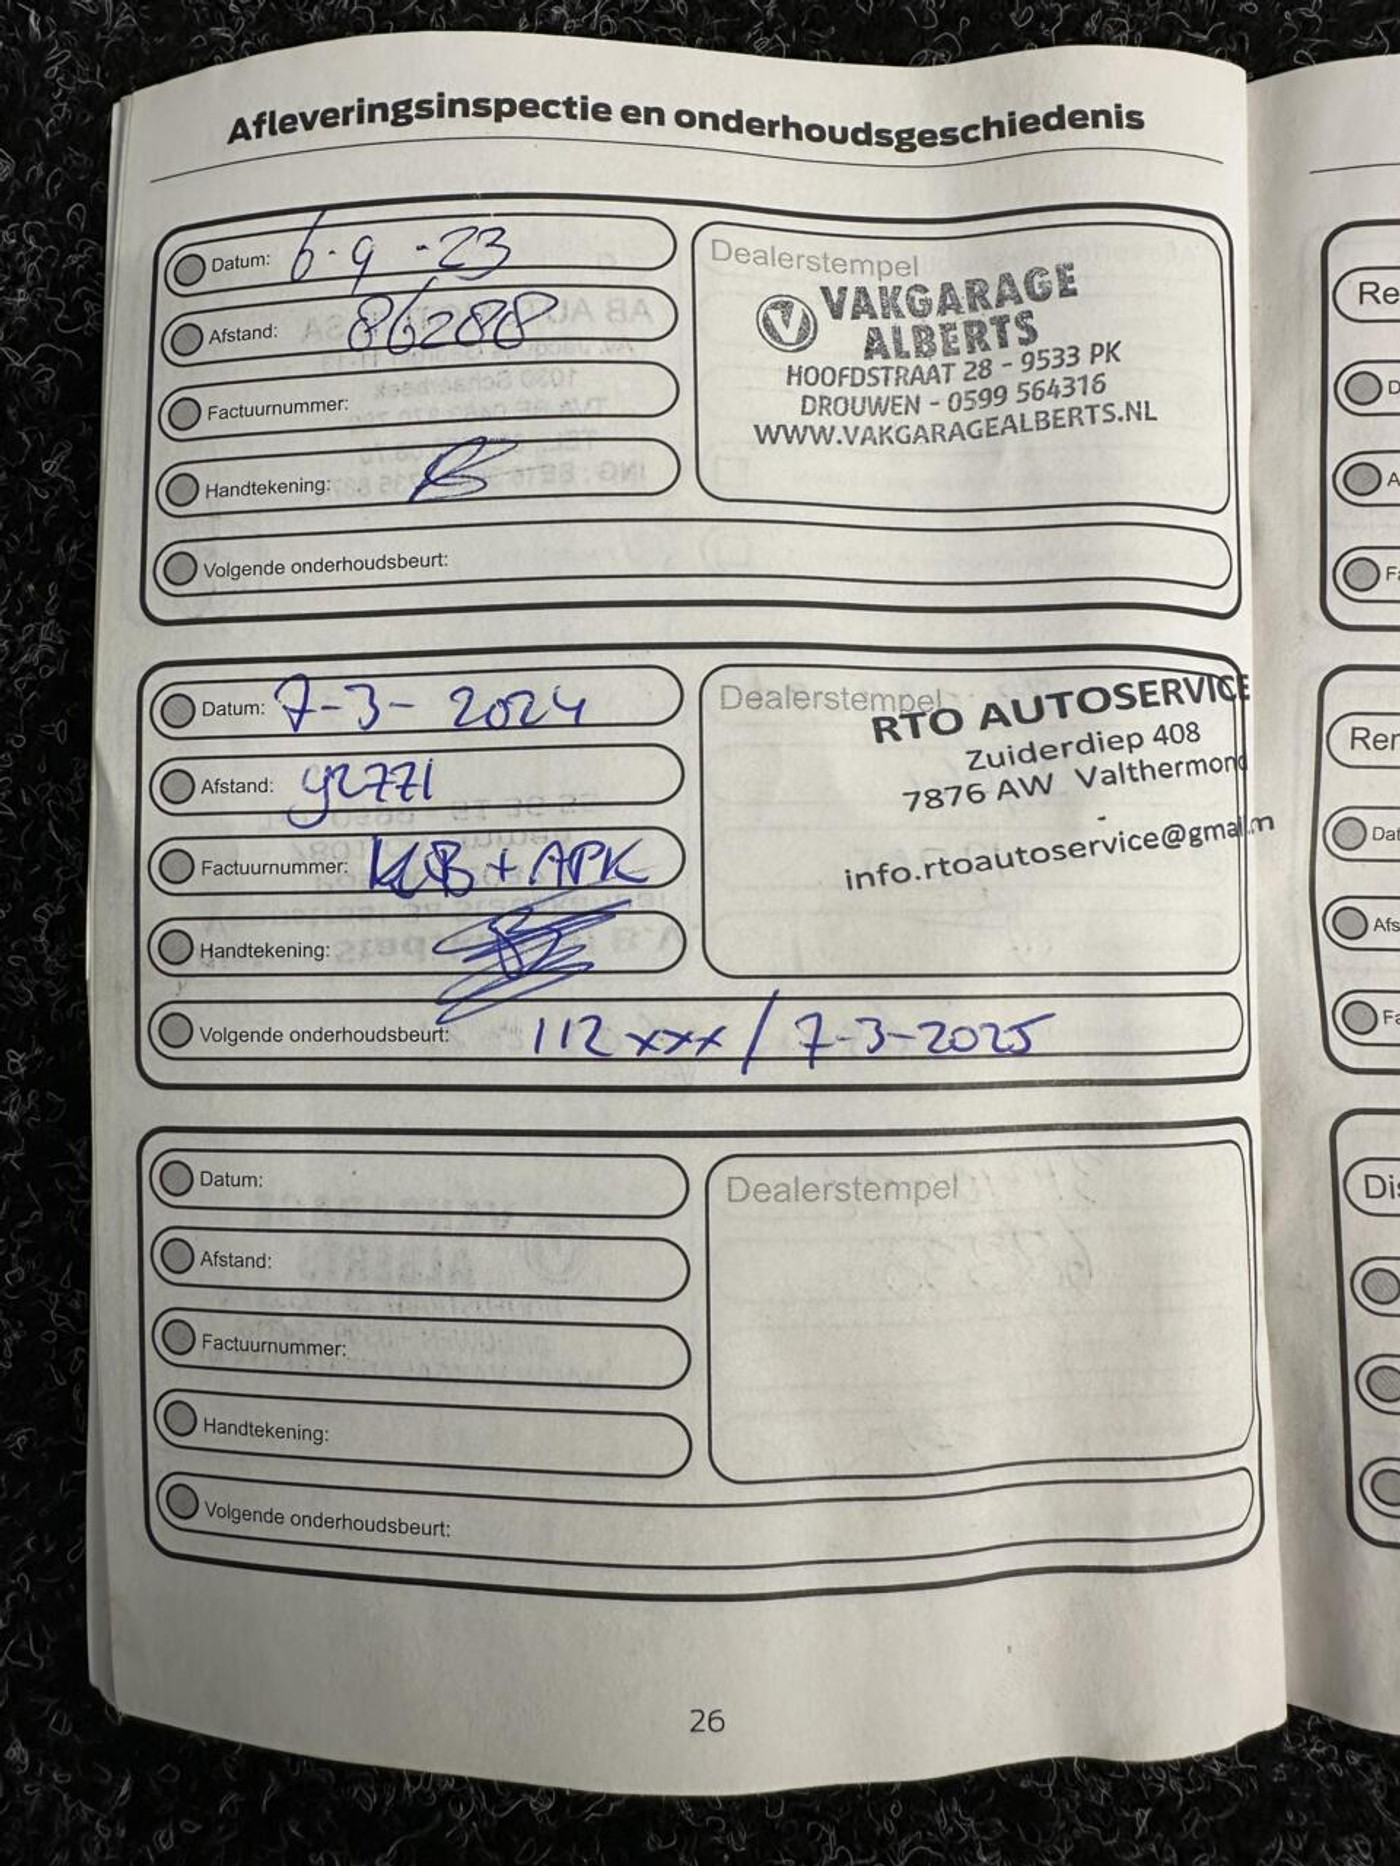 Afleveringsinspectie en onderhoudsgeschiedenis
Datum: 6-9-23
Afstand: 86288
Factuurnummer:
Handtekening:
Volgende onderhoudsbeurt:
Dealerstempel
VAKGARAGE
ALBERTS
HOOFDSTRAAT 28 - 9533 PK
DROUWEN - 0599 564316
WWW.VAKGARAGEALBERTS.NL
Datum: 7-3-2024
Afstand: 92771
Factuurnummer: KLB + APK
Handtekening:
Volgende onderhoudsbeurt: 112xxx / 7-3-2025
Dealerstempel
RTO AUTOSERVICE
Zuiderdiep 408
7876 AW Valthermond
-
info.rtoautoservice@gmail.m
Datum:
Afstand:
Factuurnummer:
Handtekening:
Volgende onderhoudsbeurt:
Dealerstempel
26
Re
D
A
Fa
Rer
Dat
Afs
Fa
Dis